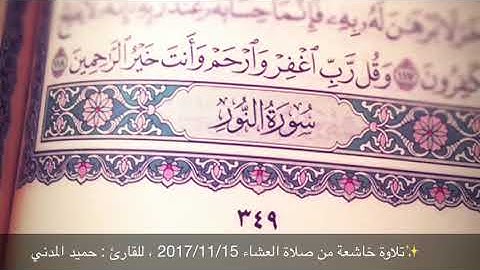 لَا بُرْهَٰنَ لَهُۥ بِهِۦ فَإِنَّمَا حِسَابُهُۥ عِندَ رَبِّهِۦٓ إِنَّهُۥ لَا يُفْلِحُ
ٱلْكَٰفِرُونَ ١١٧ وَقُل رَّبِّ ٱغْفِرْ وَٱرْحَمْ وَأَنتَ خَيْرُ ٱلرَّٰحِمِينَ ١١٨
سُورَةُ النُّورِ
٣٤٩
✨تلاوة خاشعة من صلاة العشاء 2017/11/15 ، للقارئ : حميد المدني